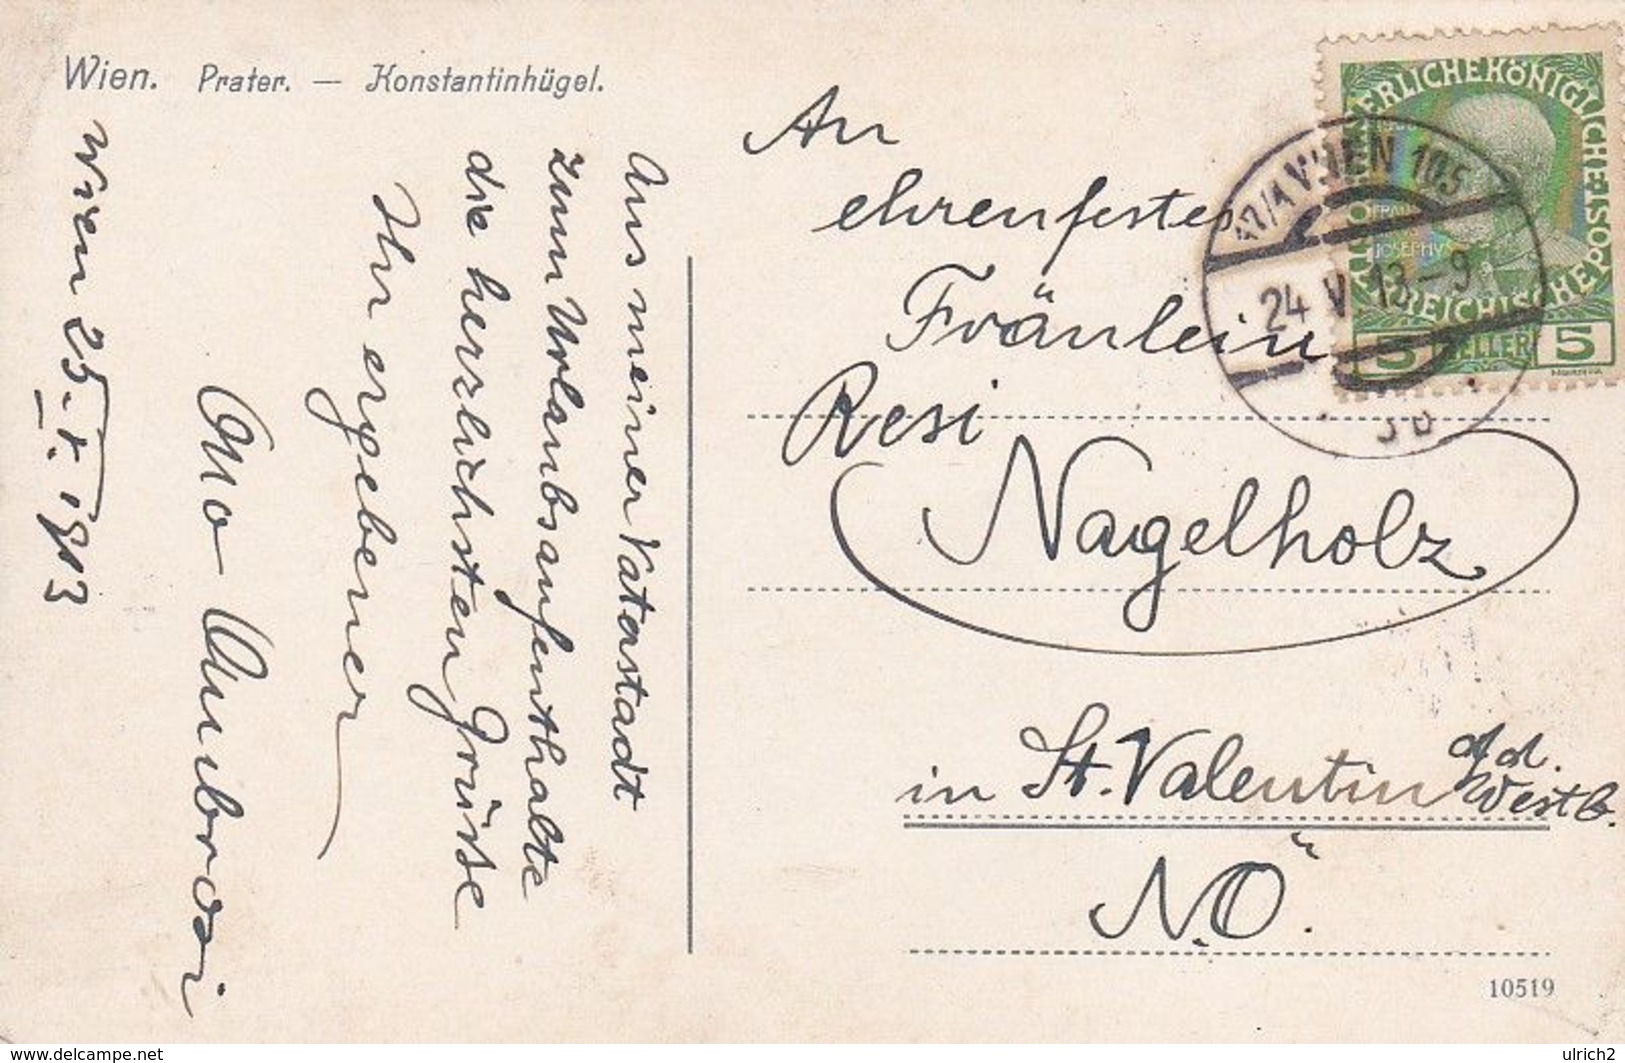 Wien. Prater. — Konstantinhügel.
Wien 25. V. 1913
Aus meiner Vaterstadt
zum Urlaubsaufenthalte
die herzlichsten Grüße
Ihr ergebener
Otto Ambrosi
An
ehrenfestes
Fräulein
Resi
Nagelholz
in St. Valentin a/d.
Westb.
N.Ö.
17/1 WIEN 105
24 V 13-9
3b
KAISERLICHE KÖNIGLICHE ÖSTERREICHISCHE POST
FRANC
JOSEPHVS
5 HELLER 5
10519
www.delcampe.net
ulrich2